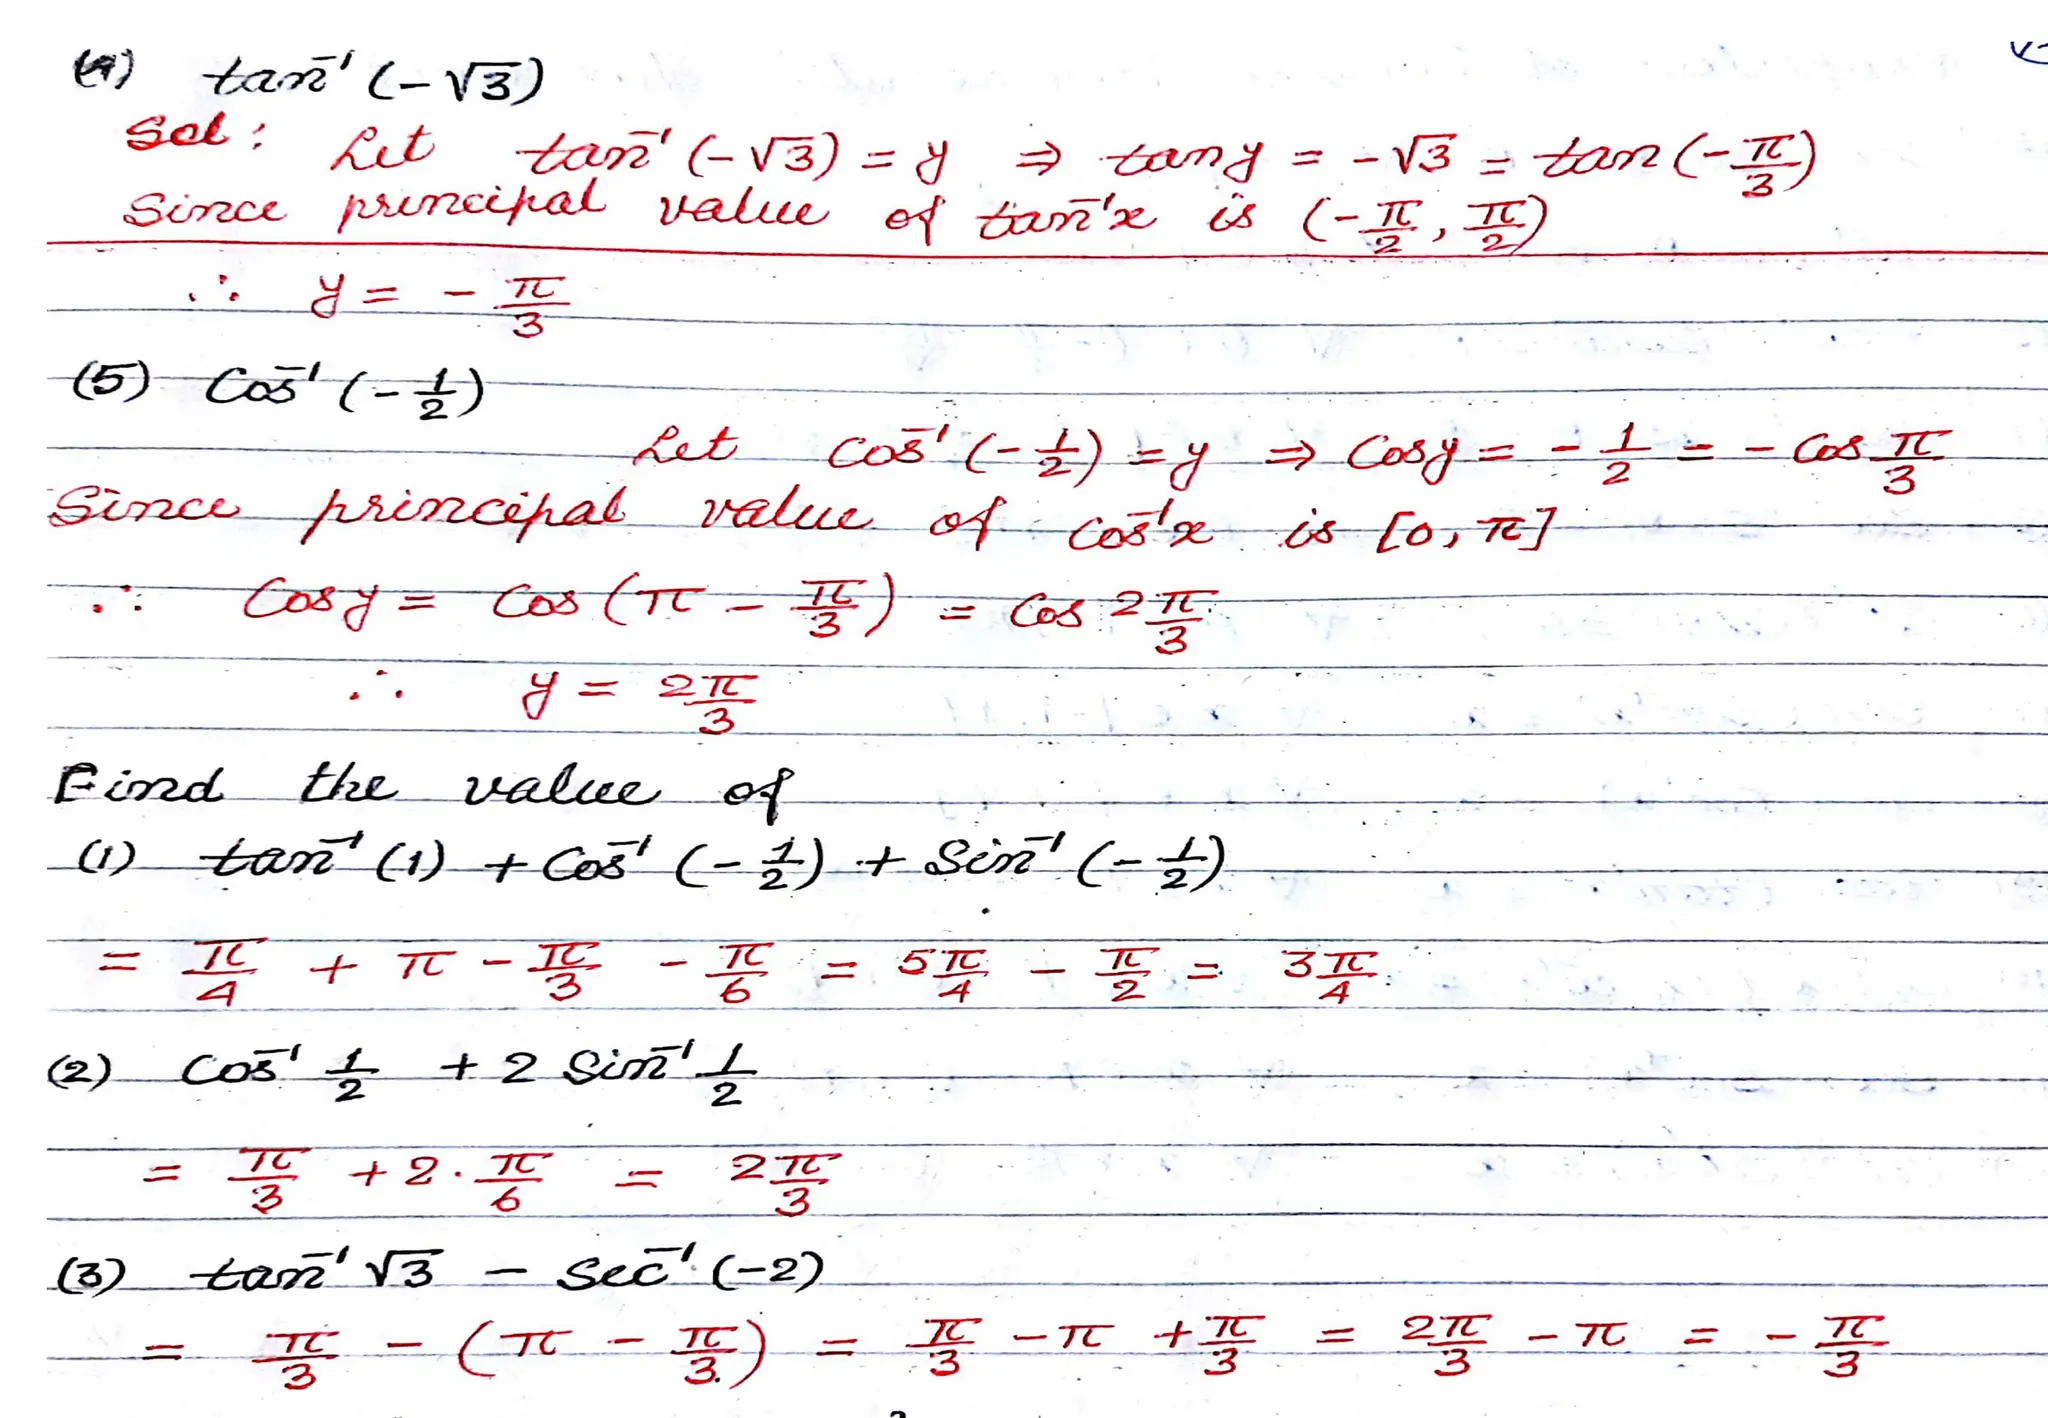 (4) tan⁻¹ (-√3)
Sol: Let tan⁻¹ (-√3) = y ⇒ tan y = -√3 = tan (-π/3)
Since principal value of tan⁻¹x is (-π/2, π/2)
∴ y = - π/3
(5) Cos⁻¹ (-1/2)
Let Cos⁻¹ (-1/2) = y ⇒ Cos y = - 1/2 = - Cos π/3
Since principal value of Cos⁻¹x is [0, π]
∴ Cos y = Cos (π - π/3) = Cos 2π/3
∴ y = 2π/3
Find the value of
(1) tan⁻¹ (1) + Cos⁻¹ (-1/2) + Sin⁻¹ (-1/2)
= π/4 + π - π/3 - π/6 = 5π/4 - π/2 = 3π/4
(2) Cos⁻¹ 1/2 + 2 Sin⁻¹ 1/2
= π/3 + 2 · π/6 = 2π/3
(3) tan⁻¹ √3 - Sec⁻¹ (-2)
= π/3 - (π - π/3) = π/3 - π + π/3 = 2π/3 - π = - π/3